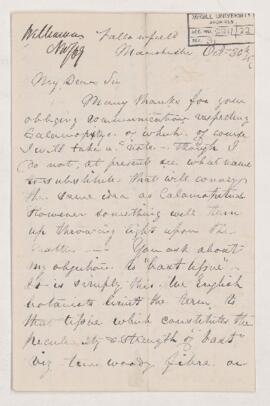 Williamson
Nov/69
McGILL UNIVERSITY
ARCHIVES
ACC. NO.
REF.
Fallowfield
Manchester Oct. 30th
My Dear Sir
Many thanks for your
obliging communication respecting
Calamopitys. of which of course
I will take a note — though I
do not, at present see what name
to substitute that will convey
the same idea as
However something will turn
up throwing light upon the
matter — You ask about
my objection to "bast tissue" –
It is simply this. We English
botanists limit the term to
that tissue which constitutes the
peculiarity & strength of "bast"
viz true woody fibre or